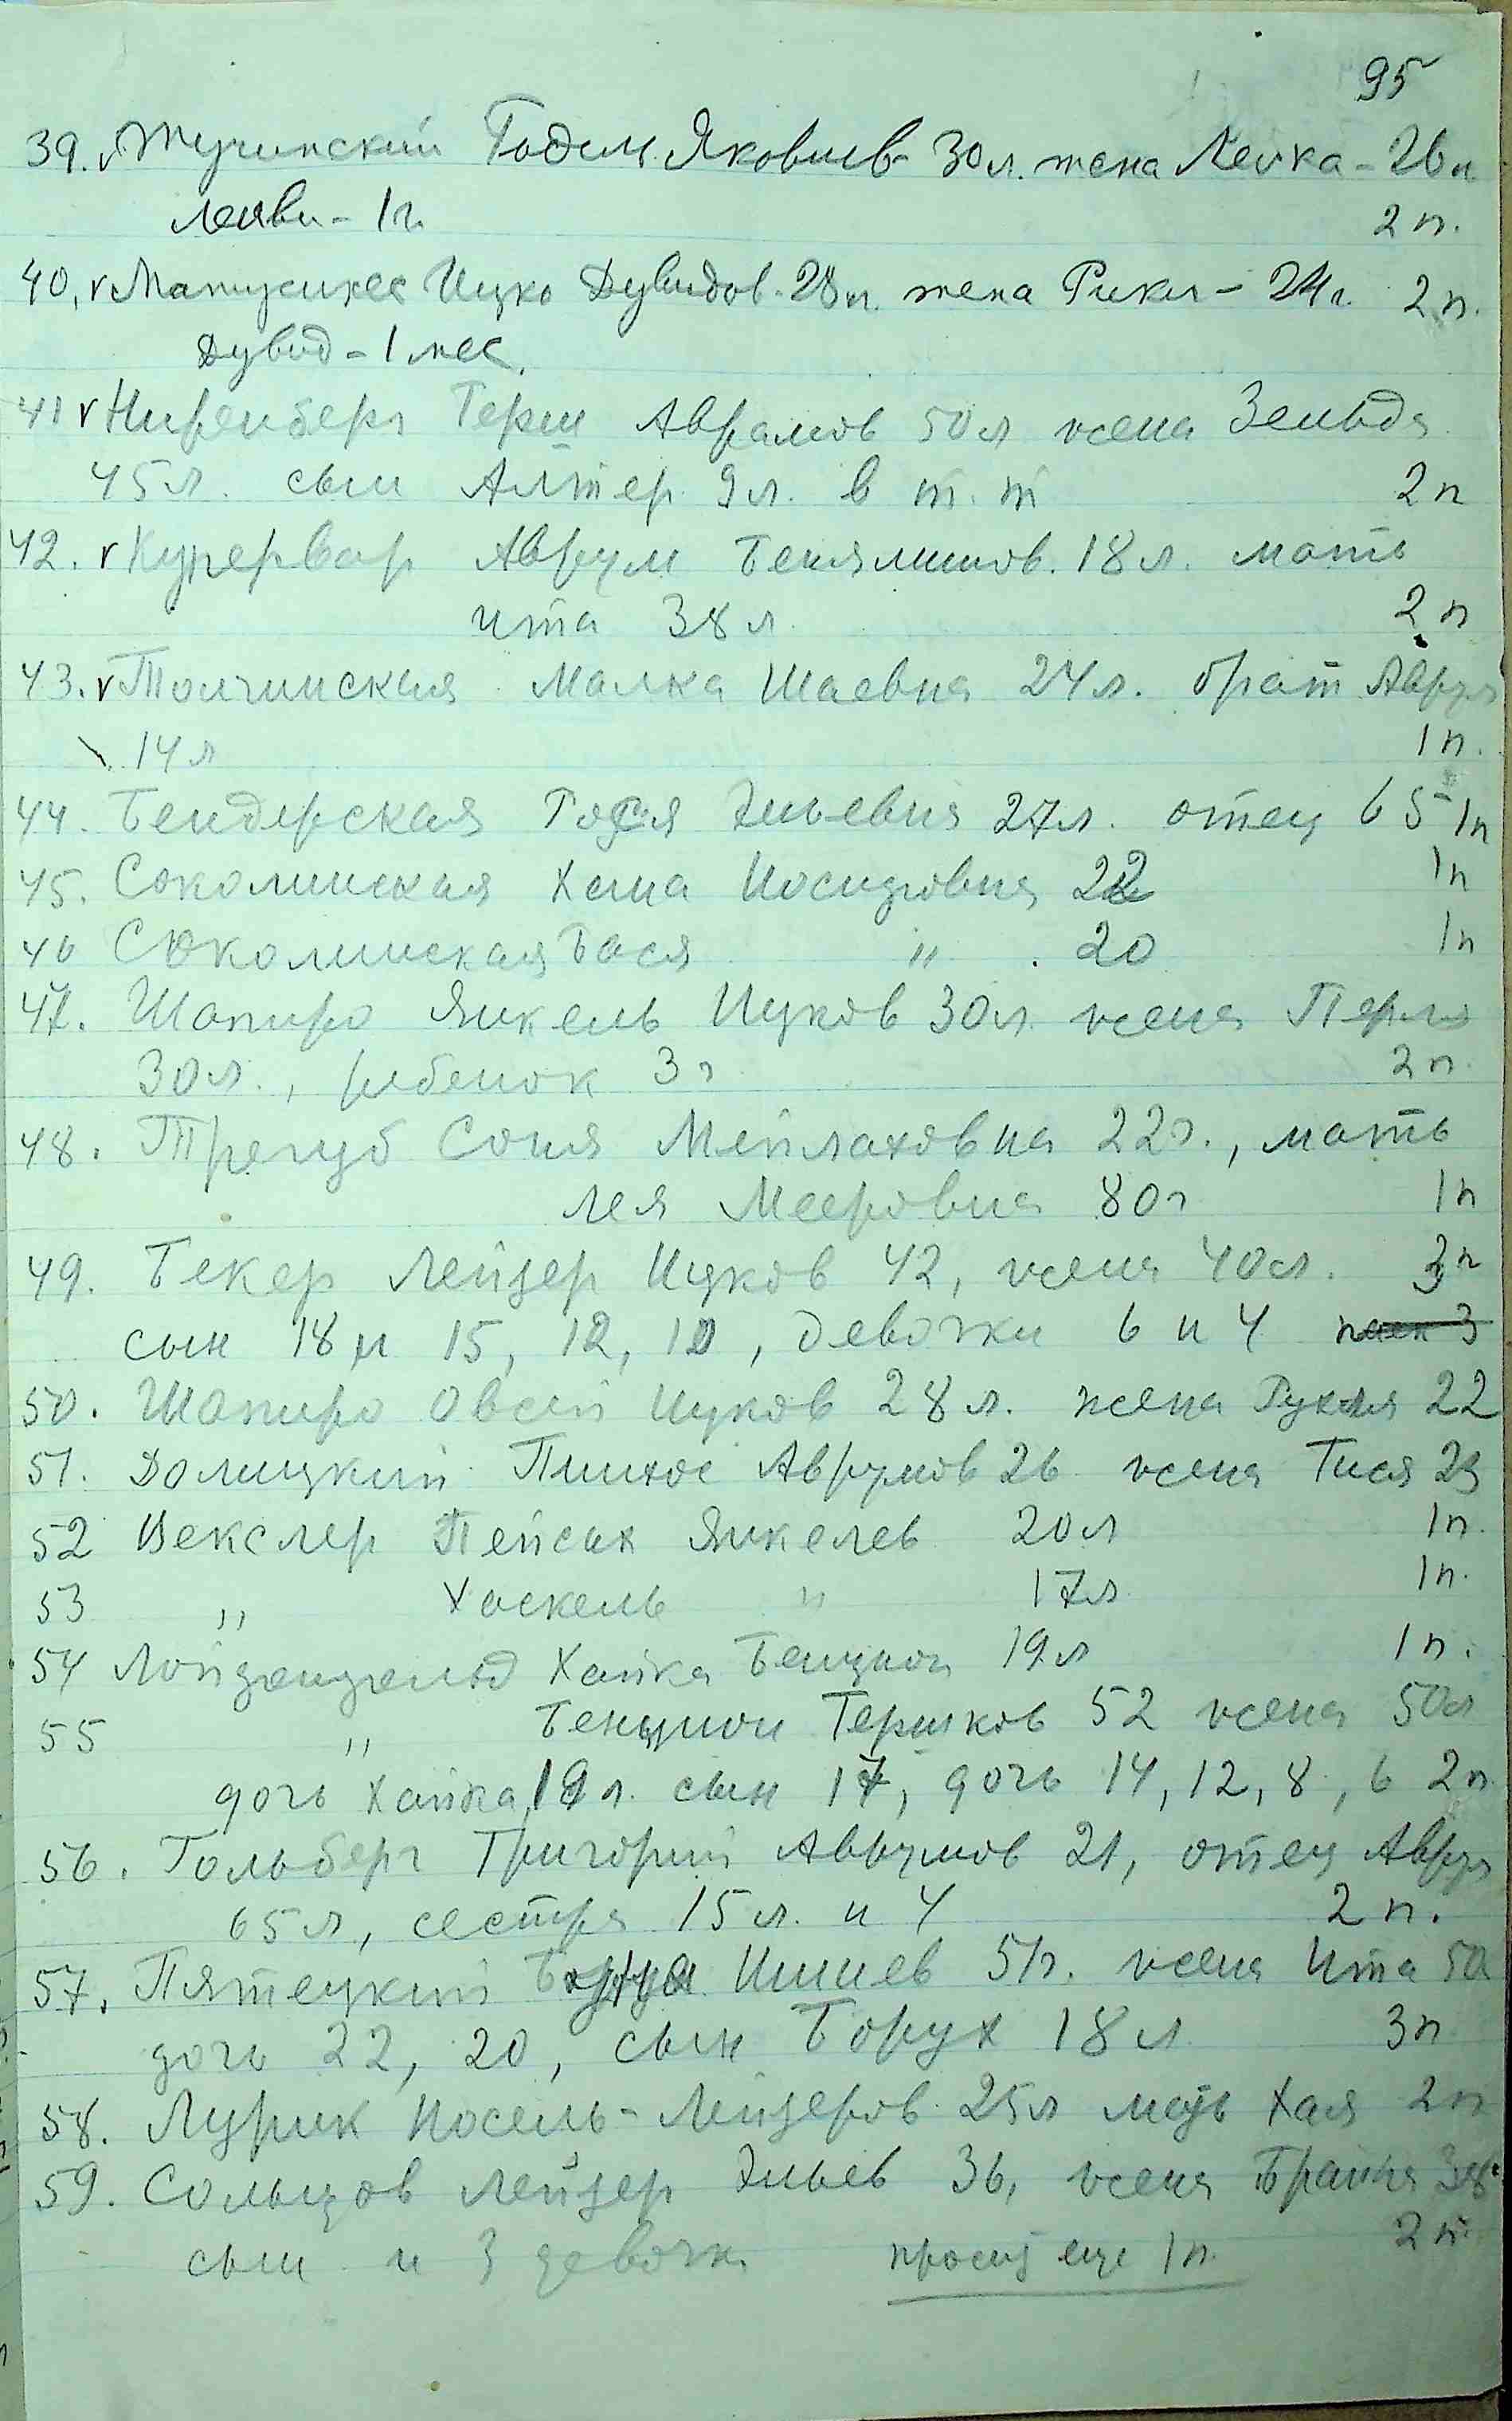 95
39. v Жучинский Годиль Яковлев - 30 л. жена Лейка - 26 л.
Лейви - 1 г. 2 п.
40. v Манусикес Ицко Дувидов - 28 л. жена Рикл - 24 г. 2 п.
Дувид - 1 мес.
41 v Ниренберг Герш Аврамов 50 л жена Зельда
45 л. сын Алтер 9 л. в т. т 2 п
42. v Купервар Аврум Бенляминов. 18 л. мать
Ита 38 л. 2 п
43. v Толчинская Малка Шаевна 24 л. брат Аврум
14 л 1 п.
44. Бендерская Гося Эльевна 27 л. отец 65 1 п
45. Соколинская Хана Иосиповна 22 1 п
46 Соколинская Бася " . 20 1 п
47. Шапиро Янкель Ицков 30 л. жена Перля
30 л., ребенок 3 г 2 п.
48. Трегуб Соня Мейлаховна 22 г., мать
Лея Мееровна 80 г 1 п
49. Бекер Лейзер Ицков 42, жена 40 л. 3 п
сын 18 и 15, 12, 10, девочки 6 и 4 паек 3
50. Шапиро Овсей Ицков 28 л. жена Рухля 22
51. Долицкий Пинхос Аврумов 26 жена Тися 23
52 Векслер Пейсах Янкелев 20 л 1 п.
53 " Хаскель " 17 л 1 п.
54 Хайка Бенцион 19 л 1 п.
55 " Бенцион Гершков 52 жена 50 л
дочь Хайка, 19 л. сын 17, дочь 14, 12, 8, 6 2 п.
56. Гольберг Григорий Аврумов 21, отец Аврум
65 л, сестра 15 л. и 4 2 п.
57. Пятецкий 51 г. жена Ита 50
дочь 22, 20, сын Борух 18 л 3 п
58. Лурик Иосель - Лейзеров 25 л мать Хая 2 п
59. Сольцов Лейзер Эльев 36, жена Брайна 38
сын и 3 девочк. просит еще 1 п. 2 п.